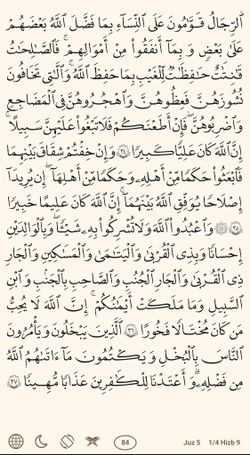 ٱلرِّجَالُ قَوَّٰمُونَ عَلَى ٱلنِّسَآءِ بِمَا فَضَّلَ ٱللَّهُ بَعْضَهُمْ
عَلَىٰ بَعْضٍ وَبِمَآ أَنفَقُوا۟ مِنْ أَمْوَٰلِهِمْ ۚ فَٱلصَّٰلِحَٰتُ
قَٰنِتَٰتٌ حَٰفِظَٰتٌ لِّلْغَيْبِ بِمَا حَفِظَ ٱللَّهُ ۚ وَٱلَّٰتِى تَخَافُونَ
نُشُوزَهُنَّ فَعِظُوهُنَّ وَٱهْجُرُوهُنَّ فِى ٱلْمَضَاجِعِ
وَٱضْرِبُوهُنَّ ۖ فَإِنْ أَطَعْنَكُمْ فَلَا تَبْغُوا۟ عَلَيْهِنَّ سَبِيلًا ۗ
إِنَّ ٱللَّهَ كَانَ عَلِيًّا كَبِيرًا ٣٤ وَإِنْ خِفْتُمْ شِقَاقَ بَيْنِهِمَا
فَٱبْعَثُوا۟ حَكَمًا مِّنْ أَهْلِهِۦ وَحَكَمًا مِّنْ أَهْلِهَآ إِن يُرِيدَآ
إِصْلَٰحًا يُوَفِّقِ ٱللَّهُ بَيْنَهُمَآ ۗ إِنَّ ٱللَّهَ كَانَ عَلِيمًا خَبِيرًا
٣٥ ۞ وَٱعْبُدُوا۟ ٱللَّهَ وَلَا تُشْرِكُوا۟ بِهِۦ شَيْـًٔا ۖ وَبِٱلْوَٰلِدَيْنِ
إِحْسَٰنًا وَبِذِى ٱلْقُرْبَىٰ وَٱلْيَتَٰمَىٰ وَٱلْمَسَٰكِينِ وَٱلْجَارِ
ذِى ٱلْقُرْبَىٰ وَٱلْجَارِ ٱلْجُنُبِ وَٱلصَّاحِبِ بِٱلْجَنۢبِ وَٱبْنِ
ٱلسَّبِيلِ وَمَا مَلَكَتْ أَيْمَٰنُكُمْ ۗ إِنَّ ٱللَّهَ لَا يُحِبُّ
مَن كَانَ مُخْتَالًا فَخُورًا ٣٦ ٱلَّذِينَ يَبْخَلُونَ وَيَأْمُرُونَ
ٱلنَّاسَ بِٱلْبُخْلِ وَيَكْتُمُونَ مَآ ءَاتَىٰهُمُ ٱللَّهُ
مِن فَضْلِهِۦ ۗ وَأَعْتَدْنَا لِلْكَٰفِرِينَ عَذَابًا مُّهِينًا ٣٧
84 Juz 5 1/4 Hizb 9